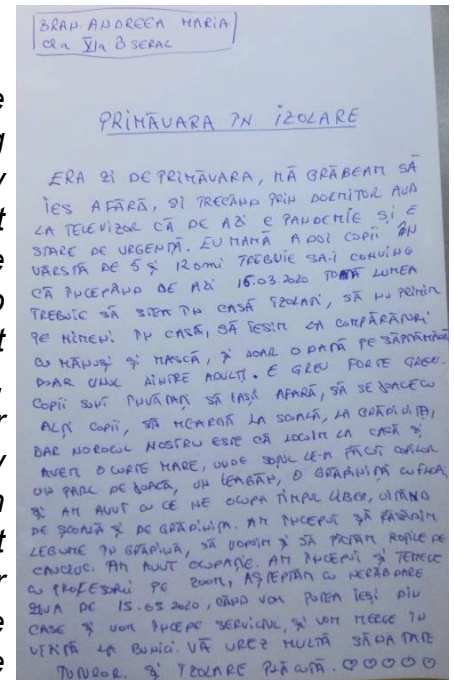 BRAN ANDREEA MARIA
cls XI a B SERAL
PRIMĂVARA ÎN IZOLARE
ERA ZI DE PRIMĂVARA, MĂ GRĂBEAM SĂ
IES AFARĂ, ȘI TRECÂND PRIN DORMITOR AUD
LA TELEVIZOR CĂ DE AZI E PANDEMIE ȘI E
STARE DE URGENȚĂ. EU MAMĂ A DOI COPII ÎN
VÂRSTĂ DE 5 ȘI 12 ani TREBUIE SĂ-I CONVING
CĂ ÎNCEPÂND DE AZI 16.03.2020 TOATĂ LUMEA
TREBUIE SĂ STEM ÎN CASĂ IZOLAȚI, SĂ NU PRIMIM
PE NIMENI ÎN CASĂ, SĂ IEȘIM LA CUMPĂRĂTURI
CU MĂNUȘI ȘI MASCĂ, ȘI DOAR O DATĂ PE SĂPTĂMÂNĂ
DOAR UNUL DINTRE ADULȚI. E GREU FORTE GREU.
COPII SUNT ÎNVĂȚAȚI SĂ IASĂ AFARĂ, SĂ SE JOACE CU
ALȚI COPII, SĂ MEARGĂ LA ȘCOALĂ, LA GRĂDINIȚĂ,
DAR NOROCUL NOSTRU ESTE CĂ LOCUIM LA CASĂ ȘI
AVEM O CURTE MARE, UNDE SOȚUL LE-A FĂCUT COPIILOR
UN PARC DE JOACĂ, UN LEAGĂN, O GRĂDINIȚĂ CU
ȘI AM AVUT CU CE NE OCUPA TIMPUL LIBER, UITÂND
DE ȘCOALĂ ȘI DE GRĂDINIȚA. AM ÎNCEPUT SĂ RĂSĂDIM
LEGUME ÎN GRĂDINĂ, SĂ VOPSIM ȘI SĂ PICTĂM ROȚILE DE
CAUCIUC. AM AVUT OCUPAȚIE. AM ÎNCEPUT ȘI TEMELE
CU PROFESORII PE ZOOM, AȘTEPTĂM CU NERĂBDARE
ZIUA DE 15-05 2020, CÂND VOM PUTEA IEȘI DIN
CASE ȘI VOM ÎNCEPE SERVICIUL, ȘI VOM MERGE ÎN
VIZITĂ LA BUNICI. VĂ UREZ MULTĂ SĂNĂTATE
TUTUROR. ȘI IZOLARE PLĂCUTĂ. ♡♡♡♡♡